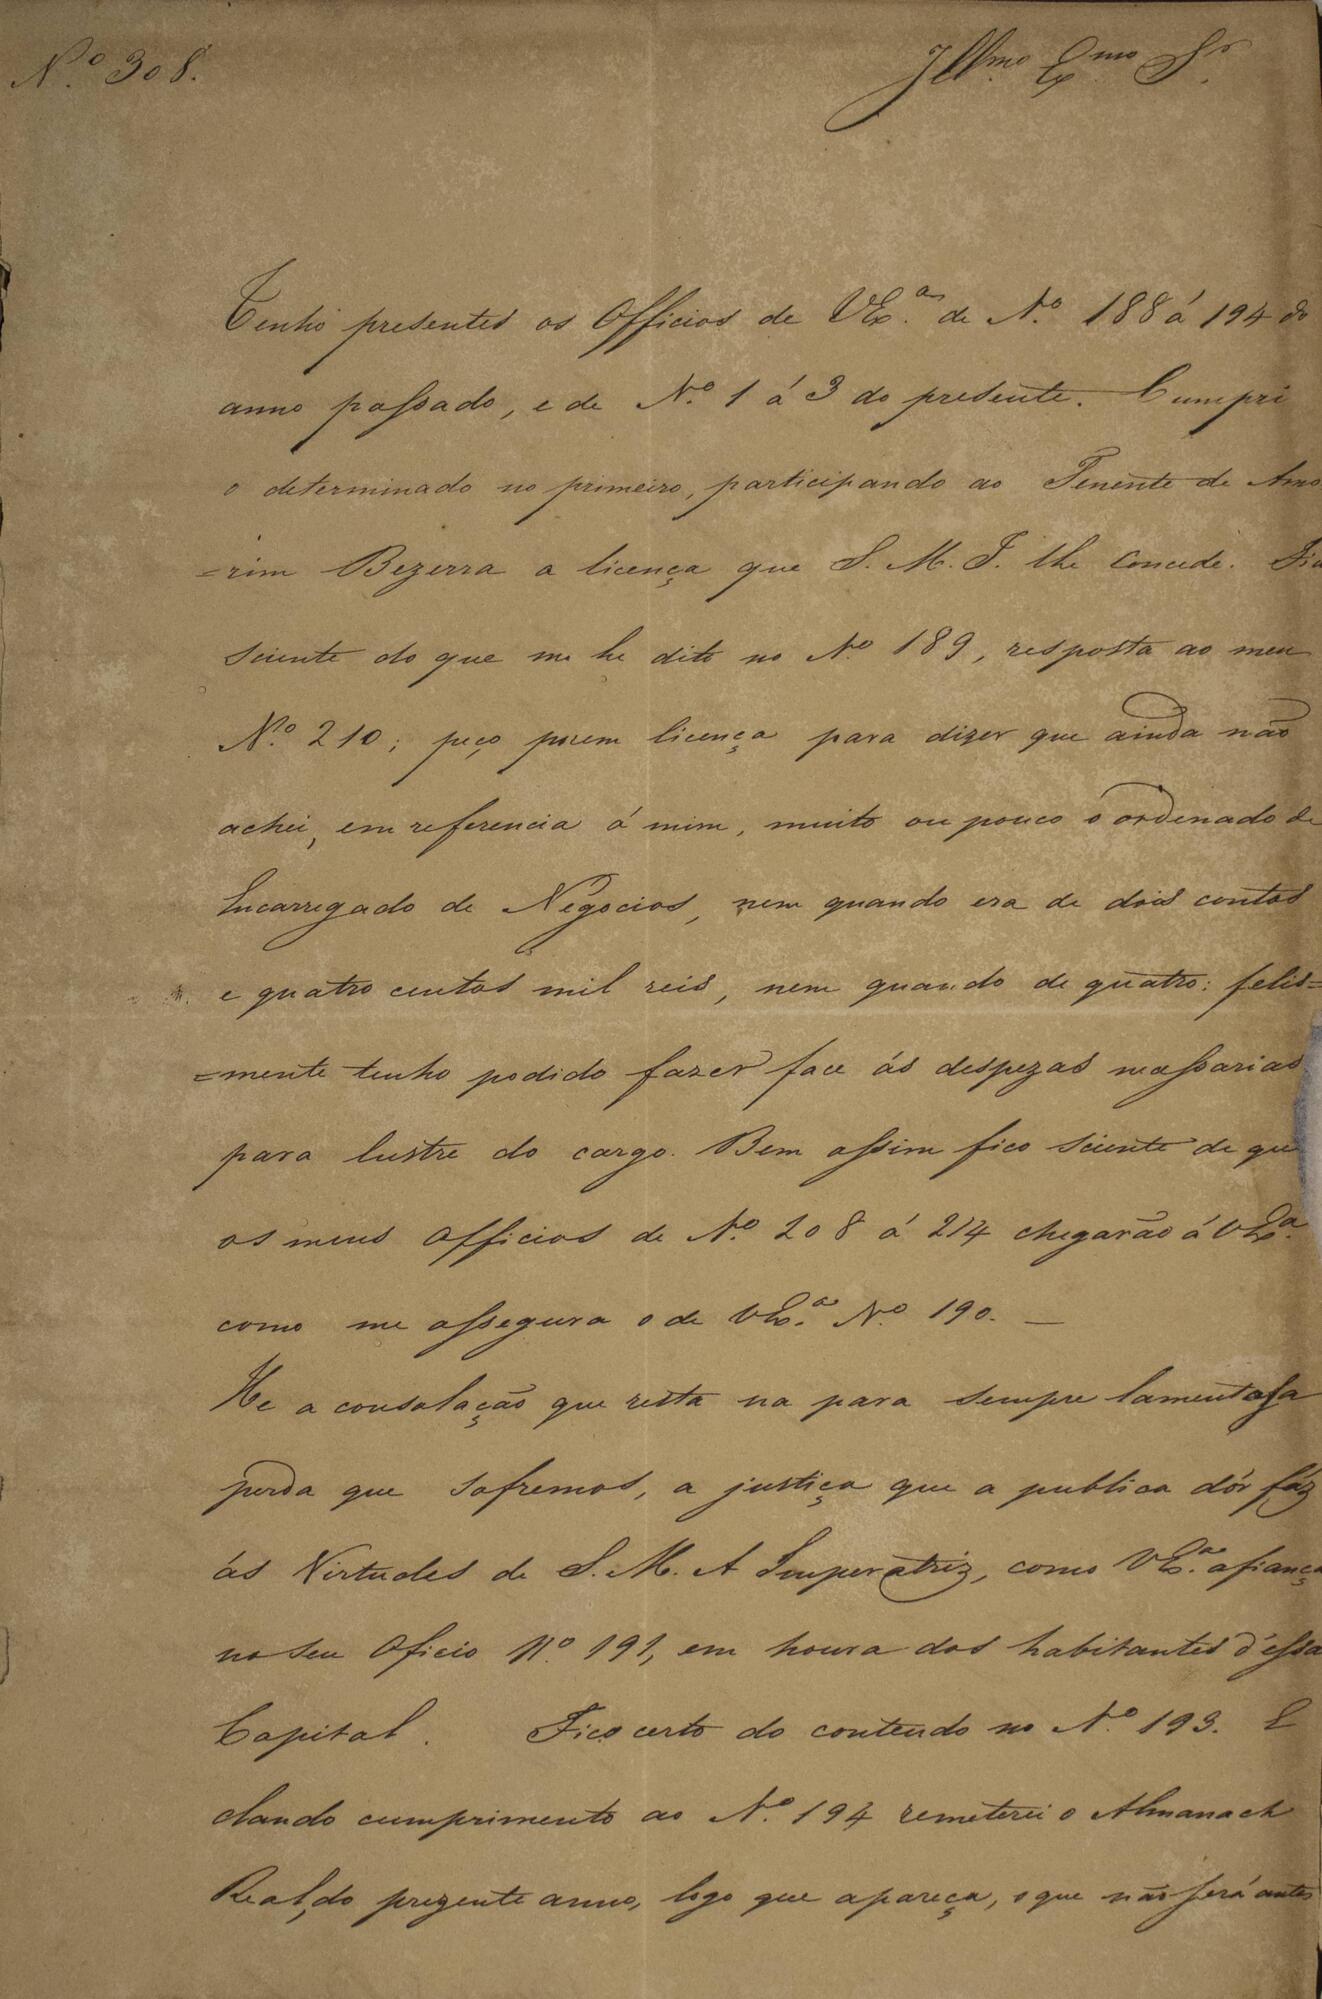 N.º 308.
Illmo. Exmo. Sr.
Tenho presentes os Officios de VEx.ª de N.º 188 á 194 do
anno passado, e de N.º 1 á 3 do presente. Cumpri
o determinado no primeiro, participando ao Tenente de Amo
=rim Bezerra a licença que S. M. I. lhe concede. Fico
sciente do que me he dito no N.º 189, resposta ao meu
N.º 210; peço porem licença para dizer que ainda não
achei, em referencia á mim, muito ou pouco o ordenado de
Encarregado de Negocios, nem quando era de dois contos
e quatro centos mil reis, nem quando de quatro: felis=
=mente tenho podido fazer face ás despezas necessarias
para lustre do cargo. Bem assim fico sciente de que
os meus Officios de N.º 208 á 214 chegarão á VEx.ª
como me assegura o de VEx.ª N.º 190. —
He a consolação que resta na para sempre lamentosa
perda que sofremos, a justiça que a publica dôr fáz
ás Virtudes de S. M. A Imperatriz, como VEx.ª afiança
no seu Oficio N.º 191, em honra dos habitantes d'essa
Capital. Fico certo do contendo no N.º 193. E
dando cumprimento ao N.º 194 remeterei o Almanach
Real, do prezente anno, logo que apareça, o que não será antes